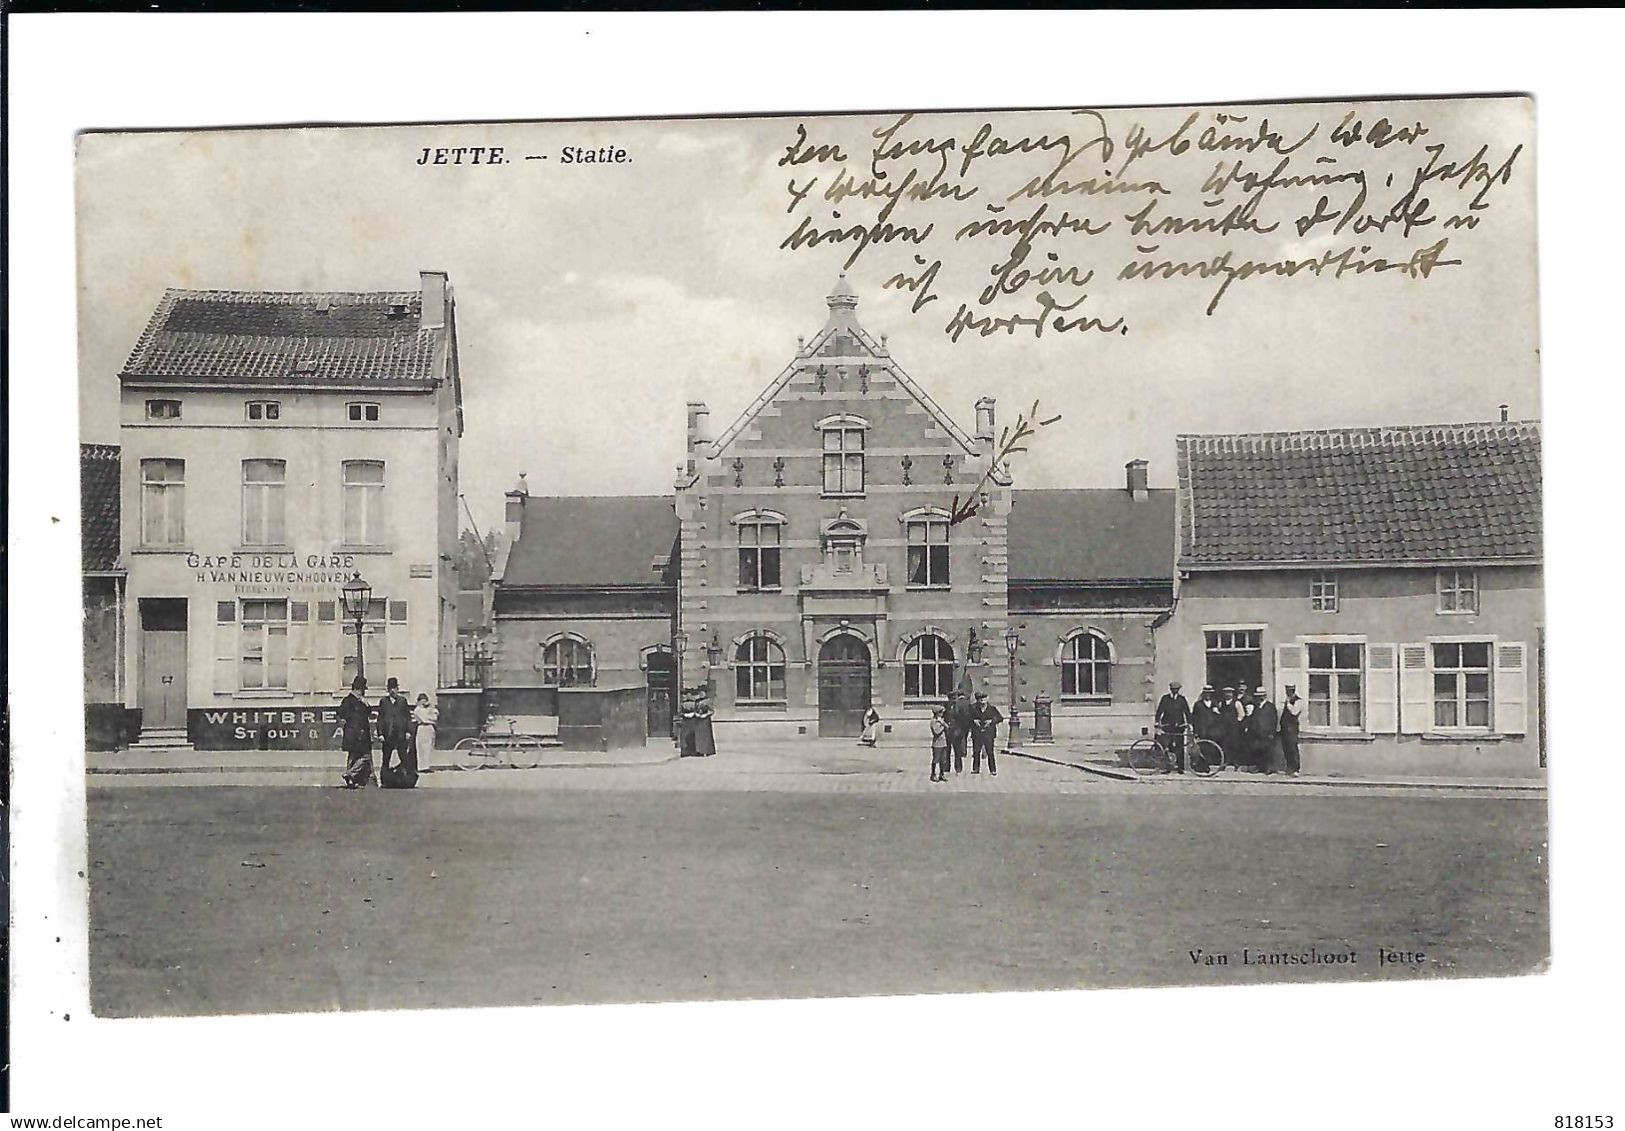 JETTE. — Statie.
Im Empfangsgebäude war
4 Wochen meine Wohnung. Jetzt
liegen unsere Leute dort u
ich bin umquartiert
worden.
CAFÉ DE LA GARE
H VAN NIEUWENHOOVEN
WHITBRE
STOUT & A
Van Lantschoot Jette
www.delcampe.net
bruvirom
818153